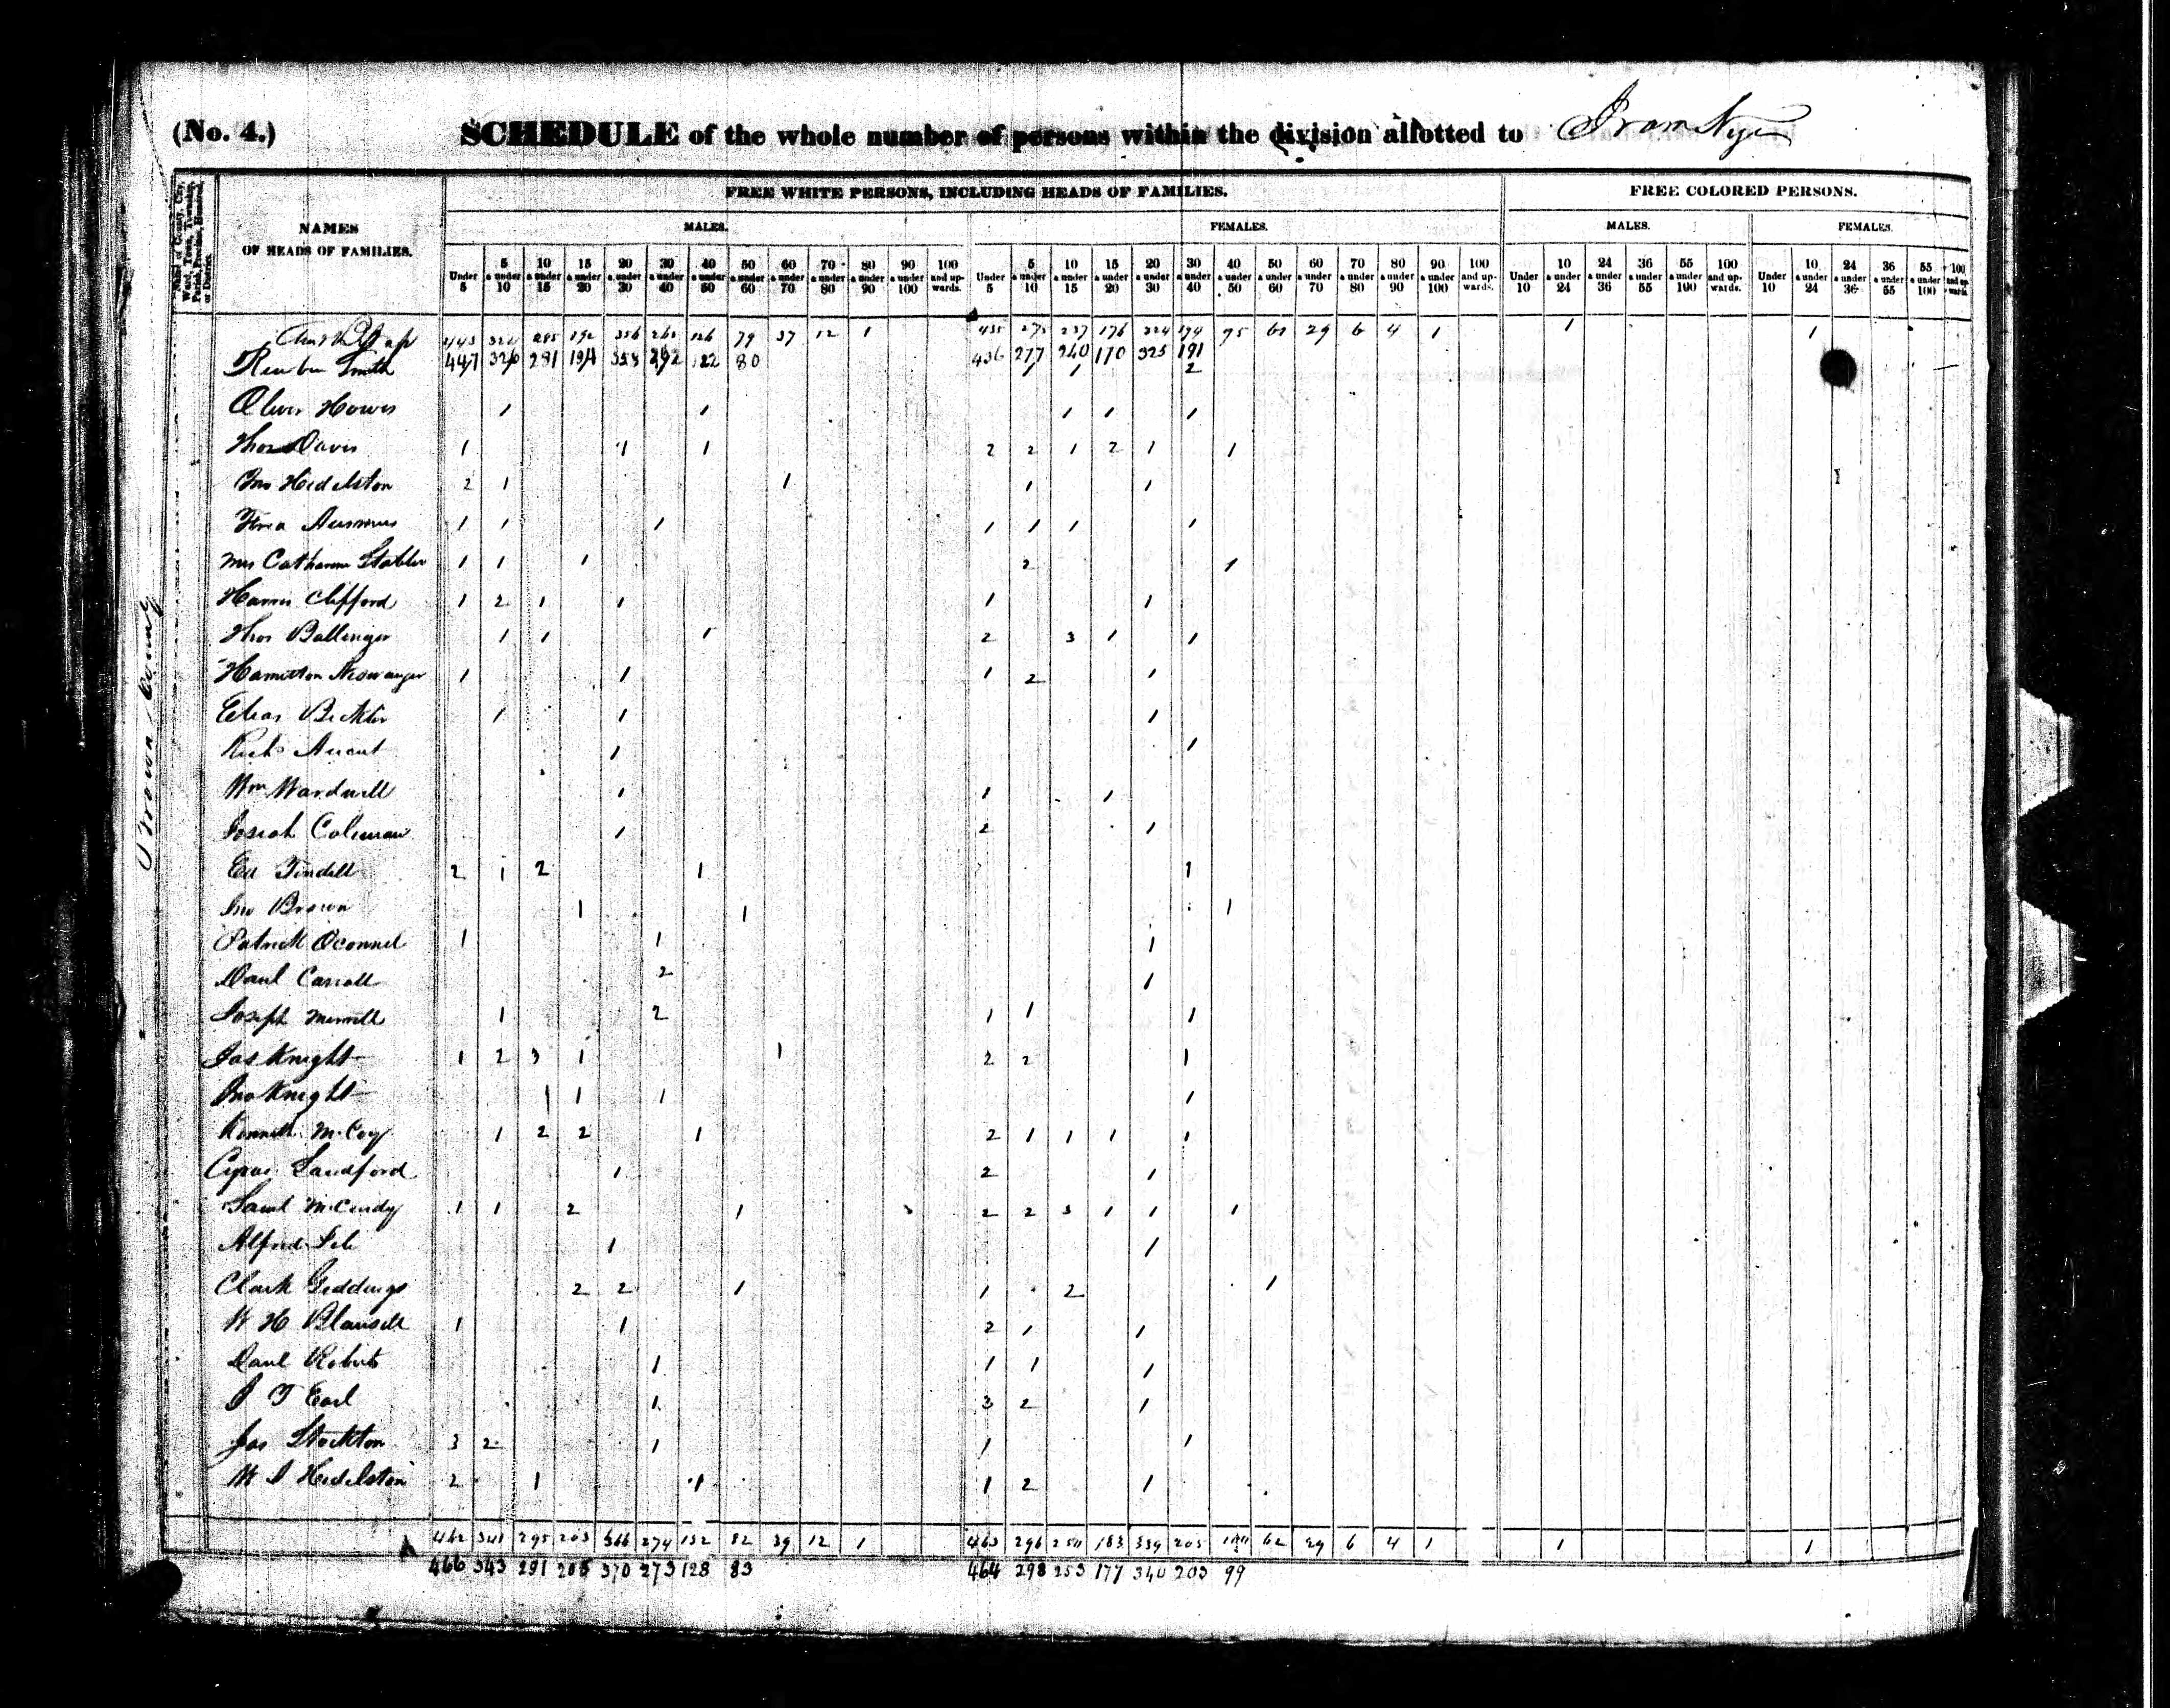 (No. 4.) SCHEDULE of the whole number of persons within the division allotted to
Name of County, City, Ward, Town, Township, Parish, Precinct, Hundred, or District.
NAMES OF HEADS OF FAMILIES.
FREE WHITE PERSONS, INCLUDING HEADS OF FAMILIES. FREE COLORED PERSONS.
MALES. FEMALES. MALES. FEMALES.
Under 5 | 5 & under 10 | 10 & under 15 | 15 & under 20 | 20 & under 30 | 30 & under 40 | 40 & under 50 | 50 & under 60 | 60 & under 70 | 70 & under 80 | 80 & under 90 | 90 & under 100 | 100 and upwards. | Under 5 | 5 & under 10 | 10 & under 15 | 15 & under 20 | 20 & under 30 | 30 & under 40 | 40 & under 50 | 50 & under 60 | 60 & under 70 | 70 & under 80 | 80 & under 90 | 90 & under 100 | 100 and upwards. | Under 10 | 10 & under 24 | 24 & under 36 | 36 & under 55 | 55 & under 100 | 100 and upwards. | Under 10 | 10 & under 24 | 24 & under 36 | 36 & under 55 | 55 & under 100 | 100 and upwards
Brown County
443 324 285 192 356 265 126 79 37 12 1 435 275 237 176 324 194 95 61 29 6 4 1 1 1
447 326 281 194 358 262 122 80 436 277 240 170 325 191
Reuben Smith 1 1 2
Oliver Howes 1 1 1 1 1
Thos Davis 1 1 1 2 2 1 2 1 1
Jno Hedelston 2 1 1 1 1 1
1 1 1 1 1 1 1
Mrs Catharine Stabler 1 1 1 2 1
Harris Clifford 1 2 1 1 1 1
Thos Ballinger 1 1 1 2 3 1 1
Hamilton Niswanger 1 1 1 2 1
Elias 1 1 1
1 1
Wm Wardwell 1 1 1
Josiah Coleman 1 2 1
Ed Tindell 2 1 2 1 1
Jno Brown 1 1 1
Patrick Oconnel 1 1 1
Danl Carroll 2 1
Joseph Merrell 1 2 1 1 1
Jas Knight 1 2 3 1 1 2 2 1
Jno Knight 1 1 1 1
Kenneth McCoy 1 2 2 1 2 1 1 1 1
Cyrus Sandford 1 2 1
Saml McCurdy 1 1 2 1 2 2 3 1 1 1
Alfred 1 1
Clark Geddings 2 2 1 1 2 1
W H Blansett 1 1 2 1 1
Danl Roberts 1 1 1 1
J T Earl 1 3 2 1
Jas Stockton 3 2 1 1 1
W S Hedelston 2 1 1 1 2 1
462 341 295 203 366 274 132 82 39 12 1 463 296 250 183 339 205 62 29 6 4 1 1 1
466 343 291 205 370 273 128 83 464 298 253 177 340 203 99